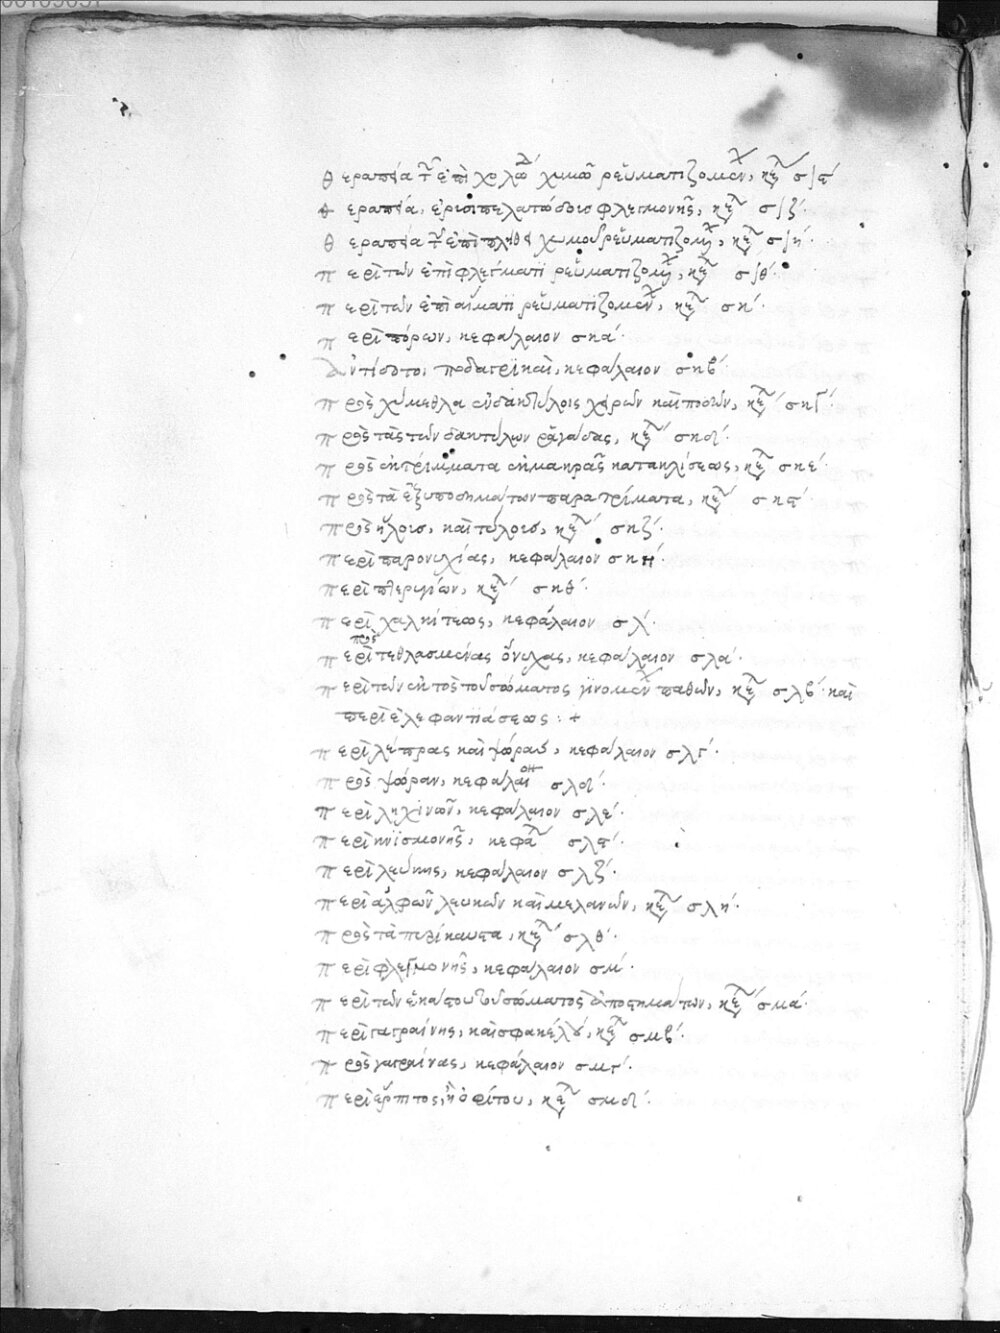 θεραπεία τῶν ἐπὶ χολώδει χυμῶ ῥευματιζομένων, κεφ σιϛ΄
θεραπεία, ἐρισιπελατώδοισ φλεγμονῆς, κεφ σιζ΄
θεραπεία τῶν ἐπὶ πλήθει χυμοῦ ῥευματιζομένων, κεφ σιη΄
περὶ τῶν ἐπὶ φλέγματι ῥευματιζομένων, κεφ σιθ΄
περὶ τῶν ἐπὶ αἵματι ῥευματιζομένων, κεφ σκ΄
περὶ πόρων, κεφάλαιον σκα΄
Ἀντίδοτοι ποδαγρικαὶ, κεφάλαιον σκβ΄
πρὸς χύμεθλα ἐν δακτύλοις χειρῶν καὶ ποδῶν, κεφ σκγ΄
πρὸς τὰς τῶν δακτύλων ῥαγάδας, κεφ σκδ΄
πρὸς ἐκτρίμματα ἐκ μακρᾶς κατακλίσεως, κεφ σκε΄
πρὸς τὰ ἐξ ὑποδημάτων παρατρίματα, κεφ σκϛ΄
πρὸς ἥλοισ, καὶ τύλοισ, κεφ σκζ΄
περὶ παρονυχίας, κεφάλαιον σκη΄
περὶ πτερυγίων, κεφ σκθ΄
περὶ χαλκίτεως, κεφάλαιον σλ΄
πρὸς
περὶ τεθλασμένας ὄνυχας, κεφάλαιον σλα΄
περὶ τῶν ἐκτὸς τοῦ σώματος γινομένων παθῶν, κεφ σλβ΄ καὶ
περὶ ἐλεφαντιάσεως : +
περὶ λέπρας καὶ ψώρας, κεφάλαιον σλγ΄
πρὸς ψώραν, κεφάλαιον σλδ΄
περὶ λειχίνων, κεφάλαιον σλε΄
περὶ κνισμονῆς, κεφα σλϛ΄
περὶ λεύκης, κεφάλαιον σλζ΄
περὶ ἀλφῶν λευκῶν καὶ μελανῶν, κεφ σλη΄
πρὸς τὰ πυρίκαυστα, κεφ σλθ΄
περὶ φλεγμονῆς, κεφάλαιον σμ΄
περὶ τῶν ἑκάστου τοῦ σώματος ἀποστημάτων, κεφ σμα΄
περὶ γαγραίνης, καὶ σφακέλου, κεφ σμβ΄
πρὸς γαγραίνας, κεφάλαιον σμγ΄
περὶ ἕρπιτος, κεφ σμδ΄